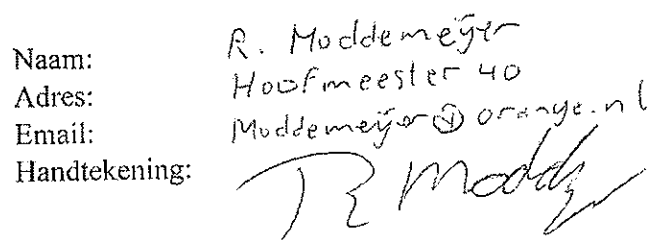 Naam: R. Moddemeijer
Adres: Hoofmeester 40
Email: Moddemeijer@orange.nl
Handtekening: R Modd